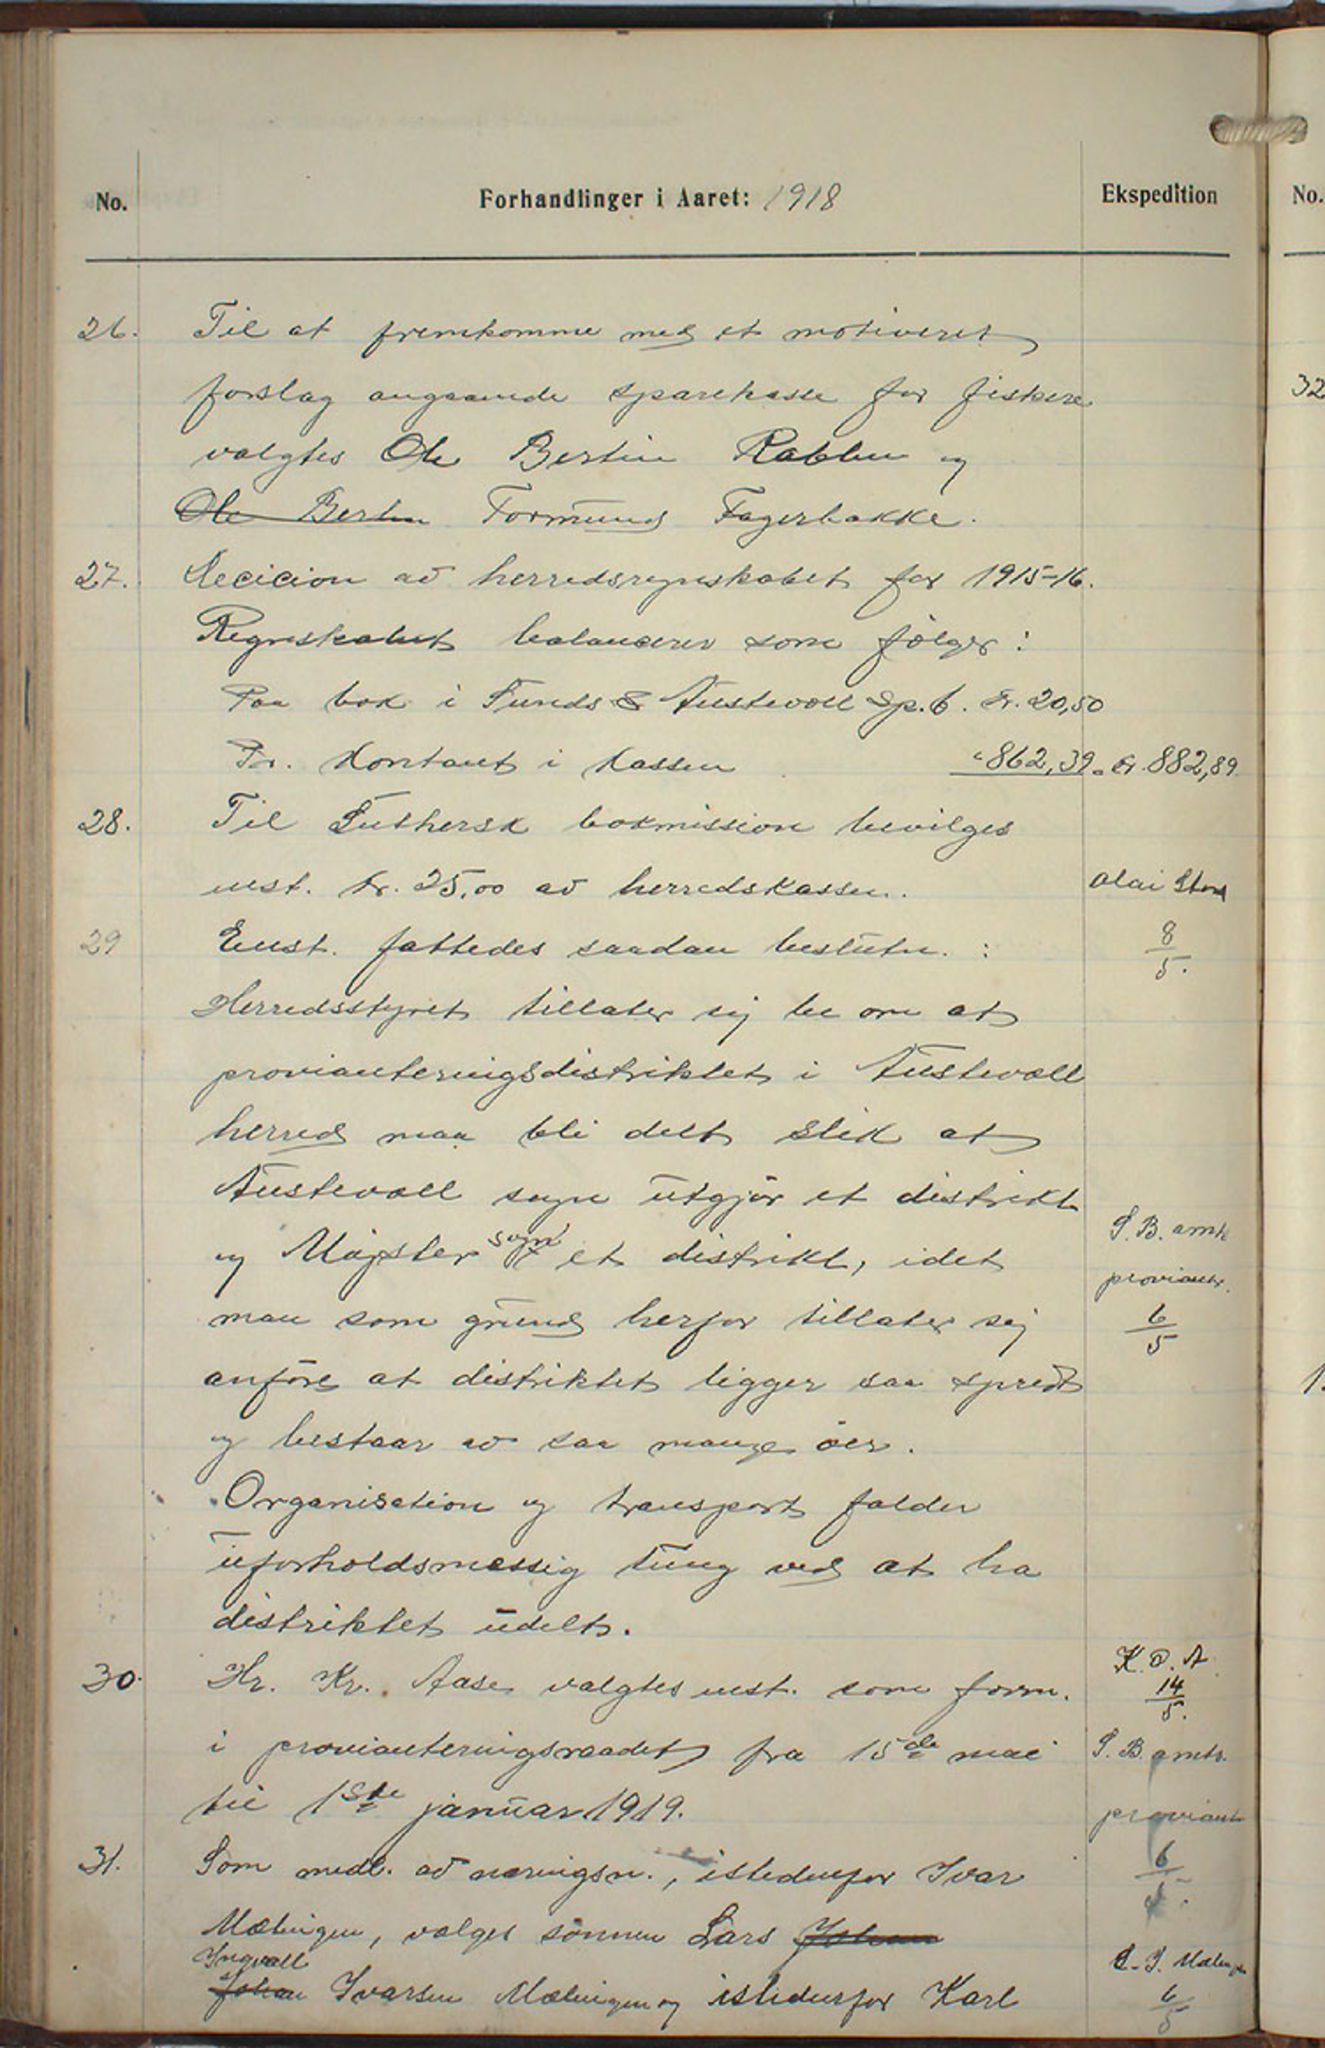 No. Forhandlinger i Aaret: 1918 Ekspedition No.
26. Til at fremkomme med et motiveret
forslag angaaende sparekasse for fiskere
valgtes Ole Bertin Rabben og
Ole Bertin Formund Fagerbakke.
27. Decicion av herredsregnskabet for 1915-16.
Regnskabet balancerer som følger:
Paa bok i Sunds & Austevoll Sp.b. Kr. 20,50
Pr. Kontant i Kassen " 862,39 = Kr. 882,89
28. Til Luthersk bokmission bevilges
enst. kr. 25,00 av herredskassen. Olai Stord
8/5.
29 Enst. fattedes saadan beslutn. :
Herredsstyret tillater sig be om at
provianteringsdistriktet i Austevoll
herred maa bli delt slik at
Austevoll sogn utgjør et distrikt
og Møgster sogn et distrikt, idet
S. B. amts
proviant.
6/5
man som grund herfor tillater sig
anføre at distriktet ligger saa spredt
og bestaar av saa mange øer.
Organisation og transport falder
uforholdsmæssig tung ved at ha
distriktet udelt.
30. Hr. Kr. Aase valgtes enst. som form.
K. O. A.
14/5.
i provianteringsraadet fra 15de mai
S. B. amts.
til 1ste januar 1919.
proviant
6/5.
31. Som medl. av næringsn., istedenfor Ivar
Møkingen, valges sønnen Lars Johan
Ingvall
Johan Ivarsen Møkingen og istedenfor Karl
6/5
32
1.